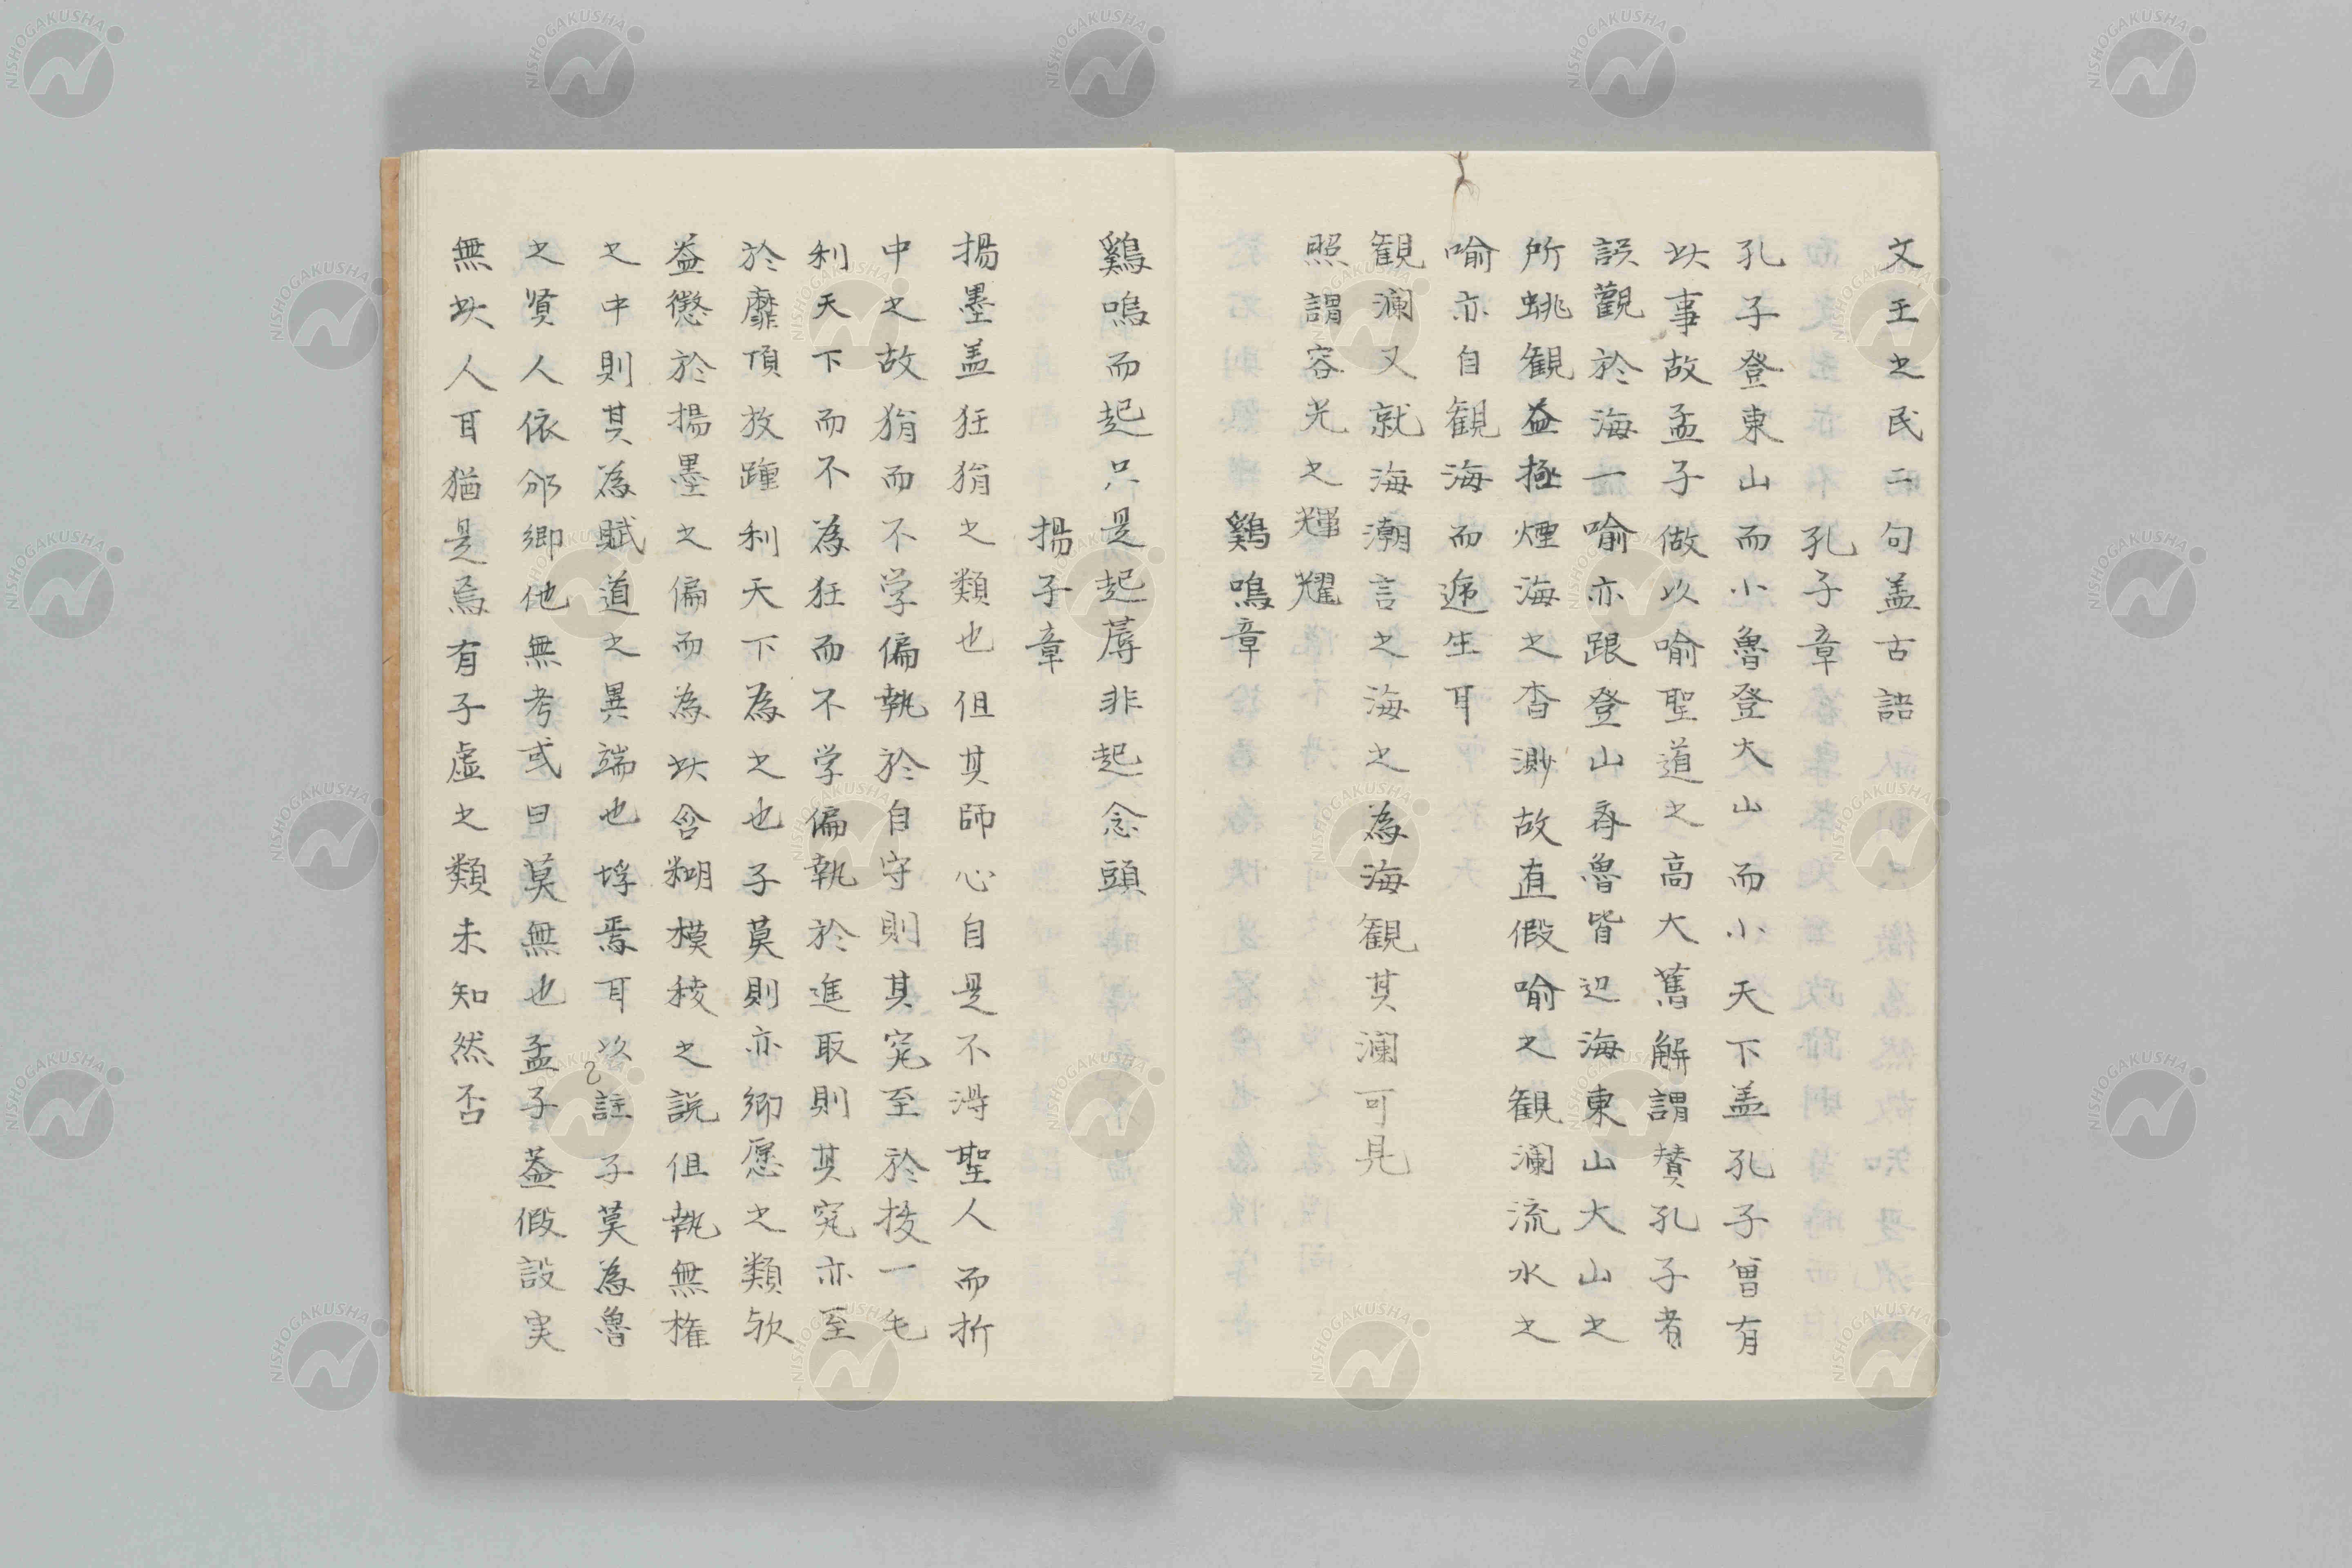 文王之民二句盖古語
孔子章
孔子登東山而小魯登大山而小天下盖孔子曽有
此事故孟子做以喻聖道之高大舊解謂賛孔子者
誤觀於海一喻亦跟登山来魯皆辺海東山大山之
所眺観益極煙海之杳渺故直假喻之観瀾流水之
喻亦自観海而逓生耳
観瀾又就海潮言之海之為海観其瀾可見
照謂容光之輝耀
鷄鳴章
鷄鳴而起只是起蓐非起念頭
揚子章
揚墨盖狂狷之類也但其師心自是不得聖人而折
中之故狷而不学偏執於自守則其究至於抜一毛
利天下而不為狂而不学偏執於進取則其究亦至
於靡頂放踵利天下為之也子莫則亦郷愿之類欤
益懲於揚墨之偏而為此含糊模稜之説但執無権
之中則其為賊道之異端也均焉耳註子莫為魯
之賢人依郷他無考或曰莫無也孟子葢假設実
無此人耳猶是烏有子虚之類未知然否
NISHOGAKUSHA